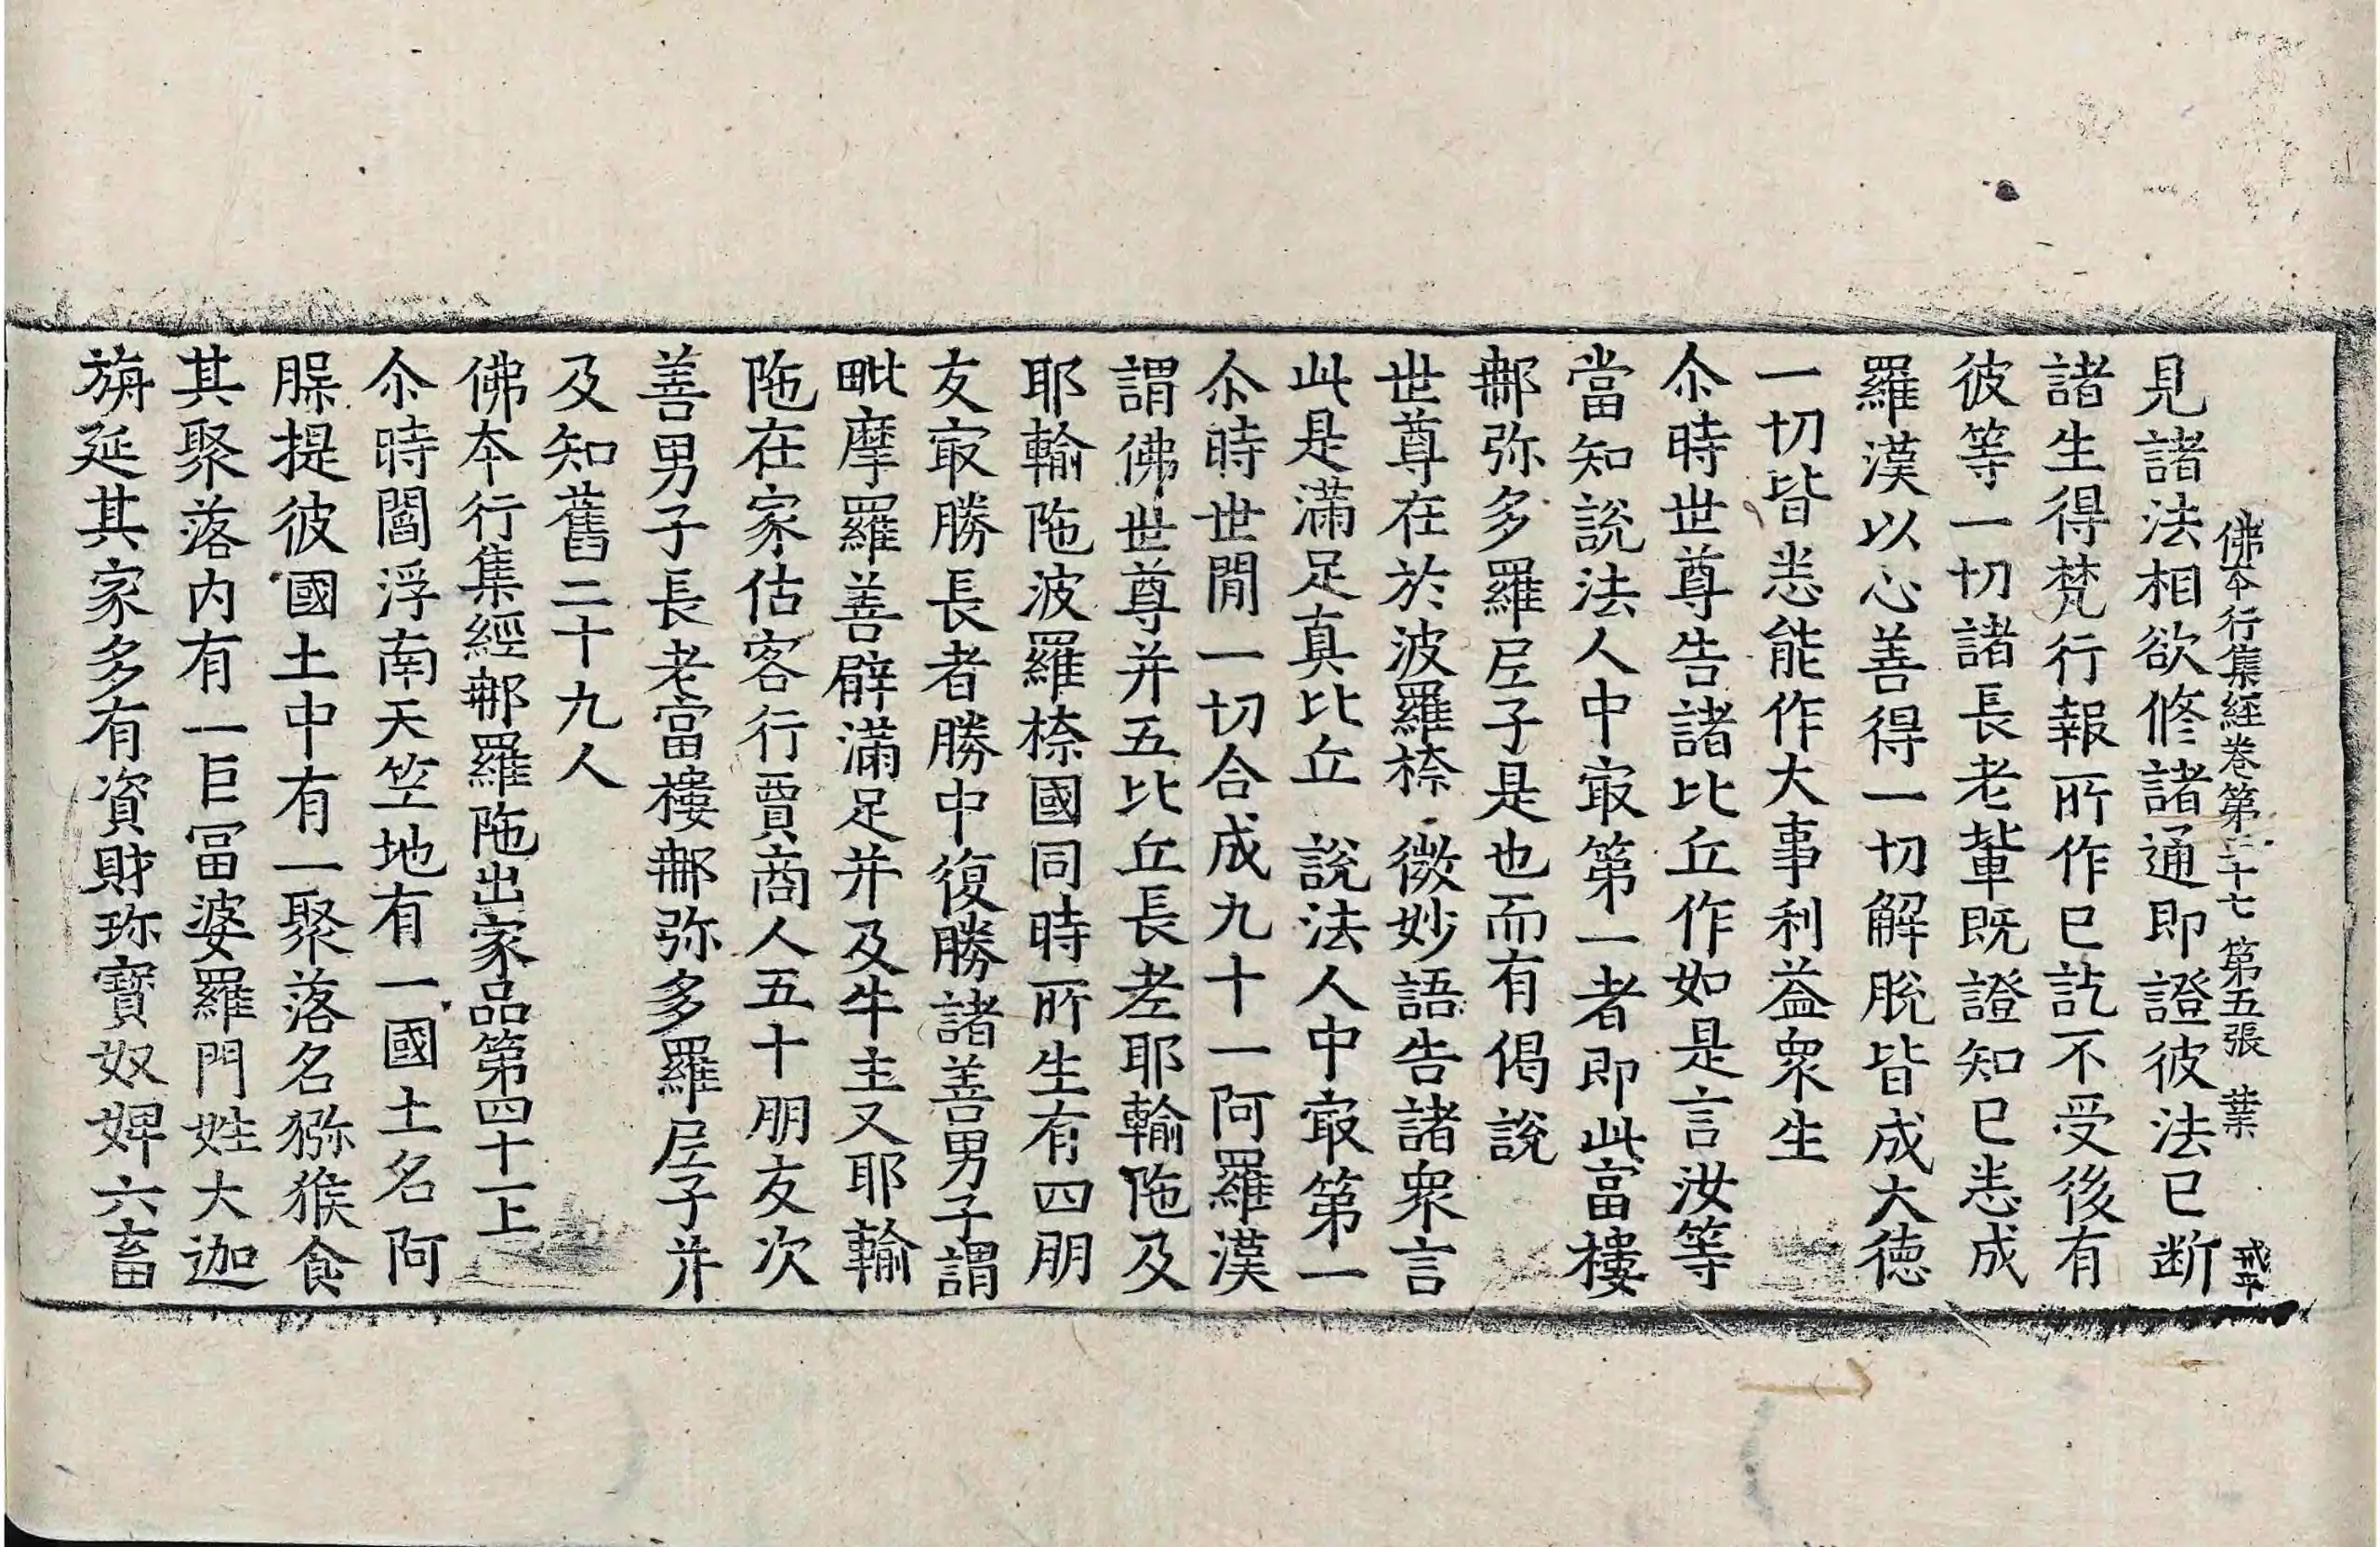 佛本行集經卷第三十七 第五張 葉 戒平
見諸法相欲修諸通即證彼法已斷
諸生得梵行報所作已訖不受後有
彼等一切諸長老輩既證知已悉成
羅漢以心善得一切解脫皆成大德
一切皆悉能作大事利益衆生
尒時世尊告諸比丘作如是言汝等
當知說法人中㝡第一者即此富樓
𨚗弥多羅𡰱子是也而有偈說
世尊在於波羅㮈 微妙語告諸衆言
此是滿足真比丘 說法人中㝡第一
尒時世閒一切合成九十一阿羅漢
謂佛世尊并五比丘長老耶輸陁及
耶輸陁波羅㮈國同時所生有四朋
友㝡勝長者勝中復勝諸善男子謂
毗摩羅善臂滿足并及牛主又耶輸
陁在家估客行賈商人五十朋友次
善男子長老富樓𨚗弥多羅𡰱子并
及知舊二十九人
佛本行集經𨚗羅陁出家品第四十一上
尒時閻浮南天竺地有一國土名阿
䐧提彼國土中有一聚落名獼猴食
其聚落內有一巨冨婆羅門姓大迦
旃延其家多有資財珎寶奴婢六畜